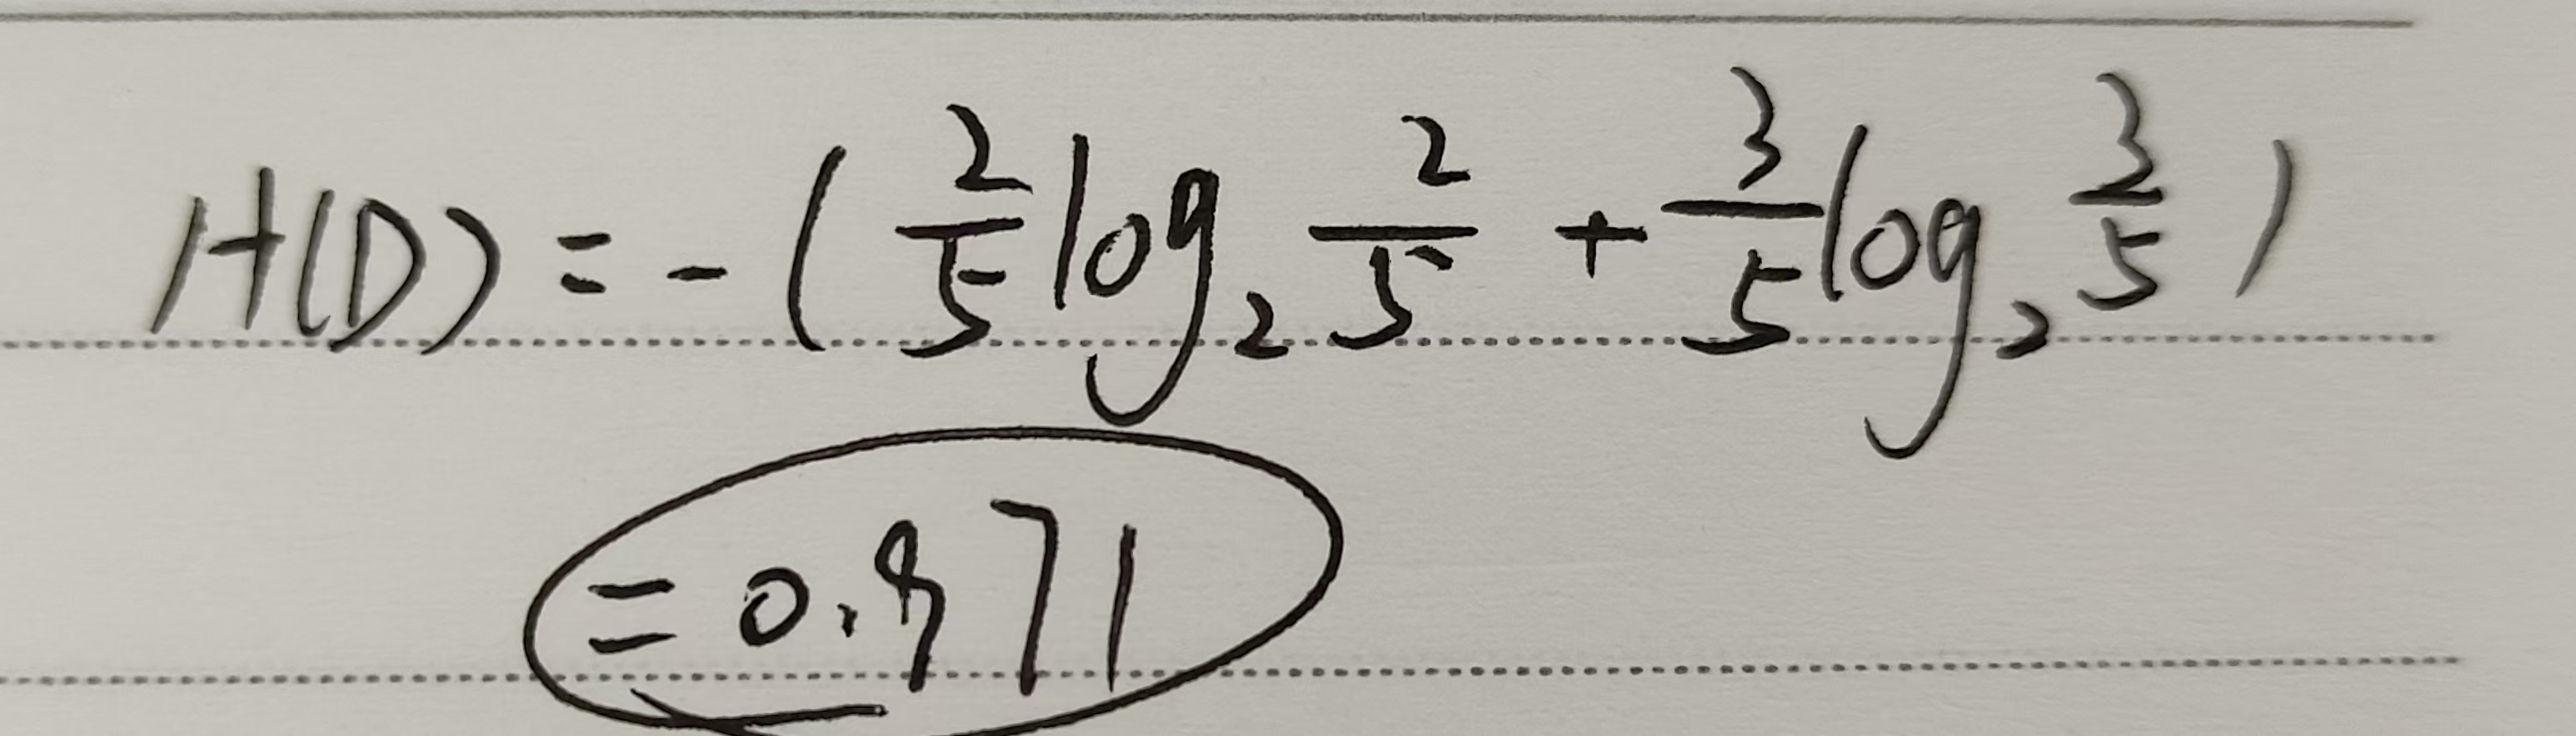 H(D) = - ( 2/5 log₂ 2/5 + 3/5 log₂ 3/5 )
= 0.971